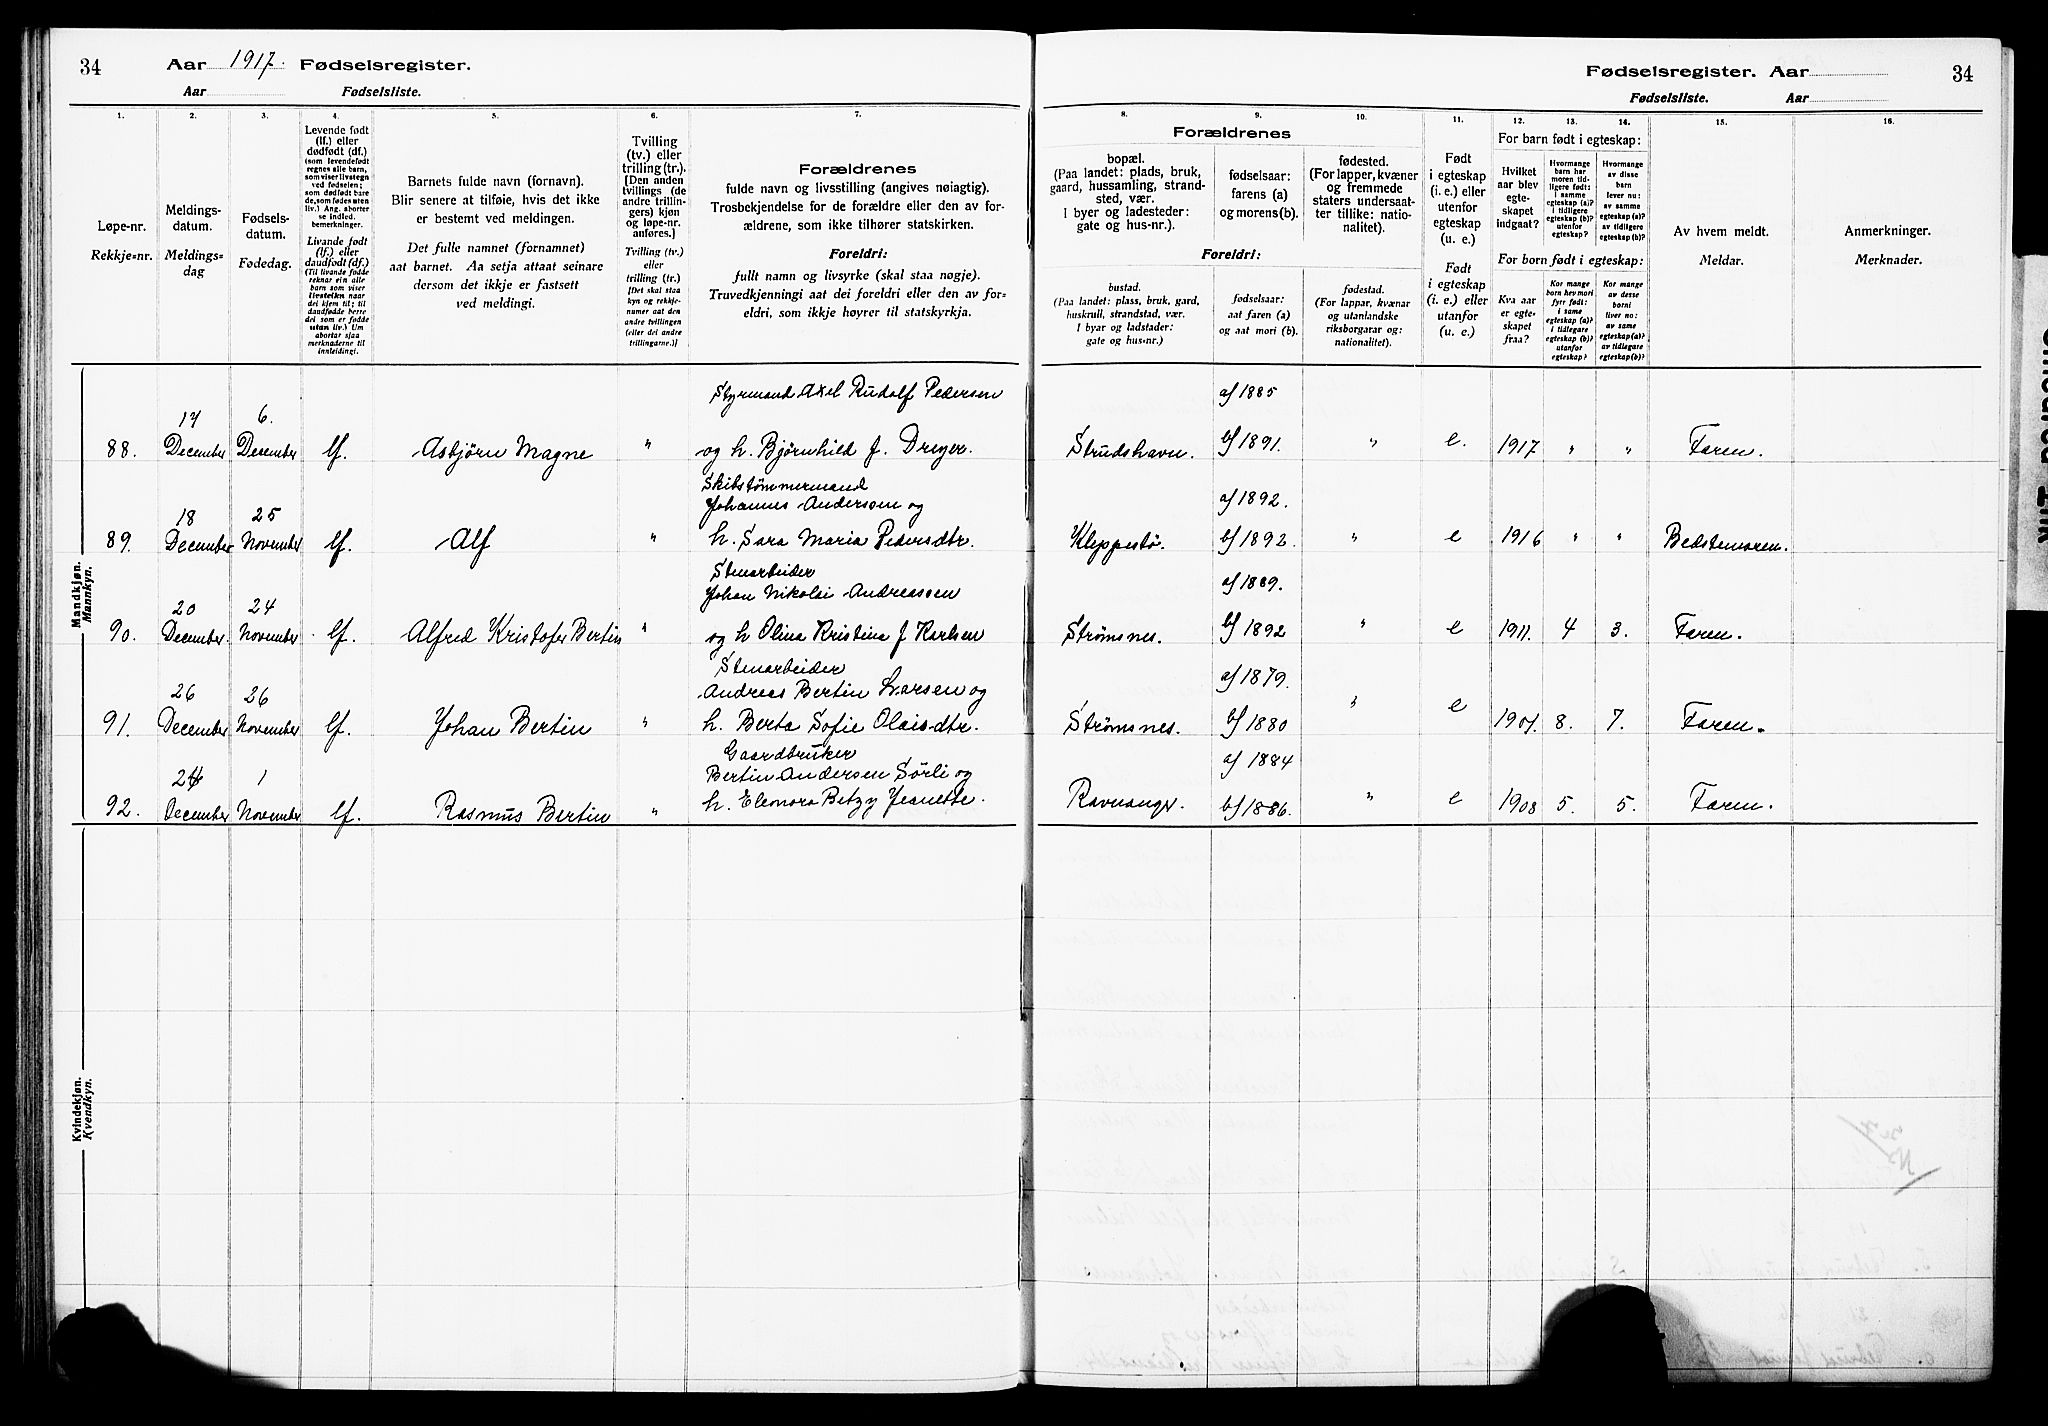 34 Aar 1917. Fødselsregister.
Aar Fødselsliste.
Fødselsregister. Aar 34
Fødselsliste. Aar
1. 2. 3. 4. 5. 6. 7. 8. 9. 10. 11. 12. 13. 14. 15. 16.
Løpe-nr.
Rekkje-nr.
Meldings-
datum.
Meldings-
dag
Fødsels-
datum.
Fødedag.
Levende født
(lf.) eller
dødfødt (df.)
(som levendefødt
regnes alle barn,
som viser livstegn
ved fødselen;
som dødfødt bare
de, som fødes uten
liv.) Ang. aborter
se indled.
bemerkninger.
Livande født
(lf.) eller
daudfødt (df.)
(Til livande fødde
reknar ein alle
born som viser
livsteikn naar
dei kjem til; til
daudfødde berre
dei som er fødde
utan liv.) Um
abortar sjaa
merknaderne til
innleidingi.
Barnets fulde navn (fornavn).
Blir senere at tilføie, hvis det ikke
er bestemt ved meldingen.
Det fulle namnet (fornamnet)
aat barnet. Aa setja attaat seinare
dersom det ikkje er fastsett
ved meldingi.
Tvilling
(tv.) eller
trilling (tr.).
[Den anden
tvillings (de
andre trillin-
gers) kjøn
og løpe-nr.
anføres.]
Tvilling (tv.)
eller
trilling (tr.)
[Det skal staa
kyn og rekkje-
numer aat den
andre tvillingen
(eller dei andre
trillingarne.)]
Forældrenes
fulde navn og livsstilling (angives nøiagtig).
Trosbekjendelse for de forældre eller den av for-
ældrene, som ikke tilhører statskirken.
Foreldri:
fullt namn og livsyrke (skal staa nøgje).
Truvedkjenningi aat dei foreldri eller den av for-
eldri, som ikkje høyrer til statskyrkja.
Forældrenes
bopæl.
(Paa landet: plads, bruk,
gaard, hussamling, strand-
sted, vær.
I byer og ladesteder:
gate og hus-nr.).
fødselsaar:
farens (a)
og morens (b).
fødested.
(For lapper, kvæner
og fremmede
staters undersaat-
ter tillike: natio-
nalitet).
Foreldri:
bustad.
(Paa landet: plass, bruk, gard,
huskrull, strandstad, vær.
I byar og ladstader:
gate og hus-nr.)
fødselsaar:
aat faren (a)
og aat mori (b).
fødestad.
(For lappar, kvænar
og utanlandske
riksborgarar og:
nationalitet).
Født
i egteskap
(i. e.) eller
utenfor
egteskap
(u. e.)
Født
i egteskap
(i. e.) eller
utanfor
(u. e.)
For barn født i egteskap:
Hvilket
aar blev
egte-
skapet
indgaat?
Hvormange
barn har
moren tid-
ligere født:
i samme
egteskap (a)?
i tidligere
egteskap (b)?
utenfor
egteskap?
Hvormange
av disse
barn
lever nu:
av samme
egteskap (a)?
av tidligere
egteskap (b)?
For born født i egteskap:
Kva aar
er egte-
skapet
fraa?
Kor mange
born hev mori
fyrr født:
i same
egteskap (a)?
i tidlegare
egteskap (b)?
utanfor
egteskap?
Kor mange
av desse
borni
liver no:
av same
egteskap (a)?
av tidlegare
egteskap (b)?
Av hvem meldt.
Meldar.
Anmerkninger.
Merknader.
Mandkjøn.
Mannkyn.
Styrmand Axel Rudolf Pedersen af 1885
17 6.
88. December December lf. Asbjörn Magne " og h. Bjørnhild f. Dreyer. Strudshavn. bf 1891. " e. 1917 " " Faren.
Skibstømmermand
18 25 Johannes Andersen og af 1892.
89. December November lf. Alf " h. Sara Maria Pedersdtr. Kleppestø. bf 1892. " e 1916 " " Bedstemoren.
Stenarbeider
20 24 Johan Nikolai Andreassen af 1889.
90. December. November lf. Alfred Kristofer Bertin " og h Olina Kristina f Karlsen Strømsnes. bf 1892 " e 1911. 4 3. Faren.
Stenarbeider
26 26 Andreas Bertin Larsen og af 1879.
91. December November lf. Johan Bertin " h. Berta Sofie Olaisdtr. Strømsnes. bf 1880 " e 1901. 8. 7. Faren.
Gaardbruker
1 Bertin Andersen Sörli og af 1884
92. December November lf. Rasmus Bertin " h. Eleonora Betzy Jeanette. Ravnanger. bf 1886. " e 1908 5. 5. Faren.
Kvindekjøn.
Kvendkyn.